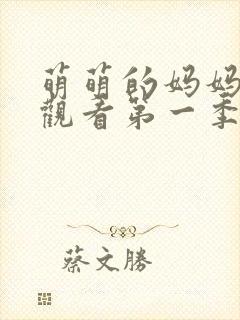 萌萌的妈妈
觀看第一季
蔡文勝